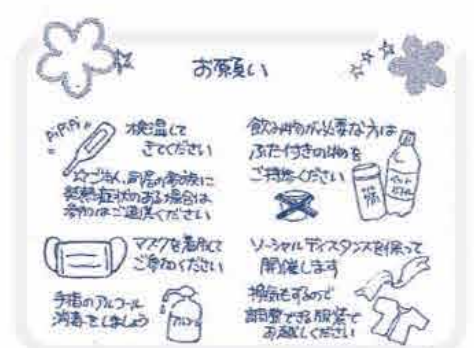 お願い
PiPiPi
検温して
きてください
☆ご本人、同居の家族に
発熱症状のある場合は
参加はご遠慮ください
マスクを着用して
ご参加ください
手指のアルコール
消毒をしましょう
アルコール
飲み物が必要な方は
ふた付きの物を
ご持参ください
水筒
ペット
ボトル
ソーシャルディスタンスを保って
開催します
換気もするので
調整できる服装で
お越しください